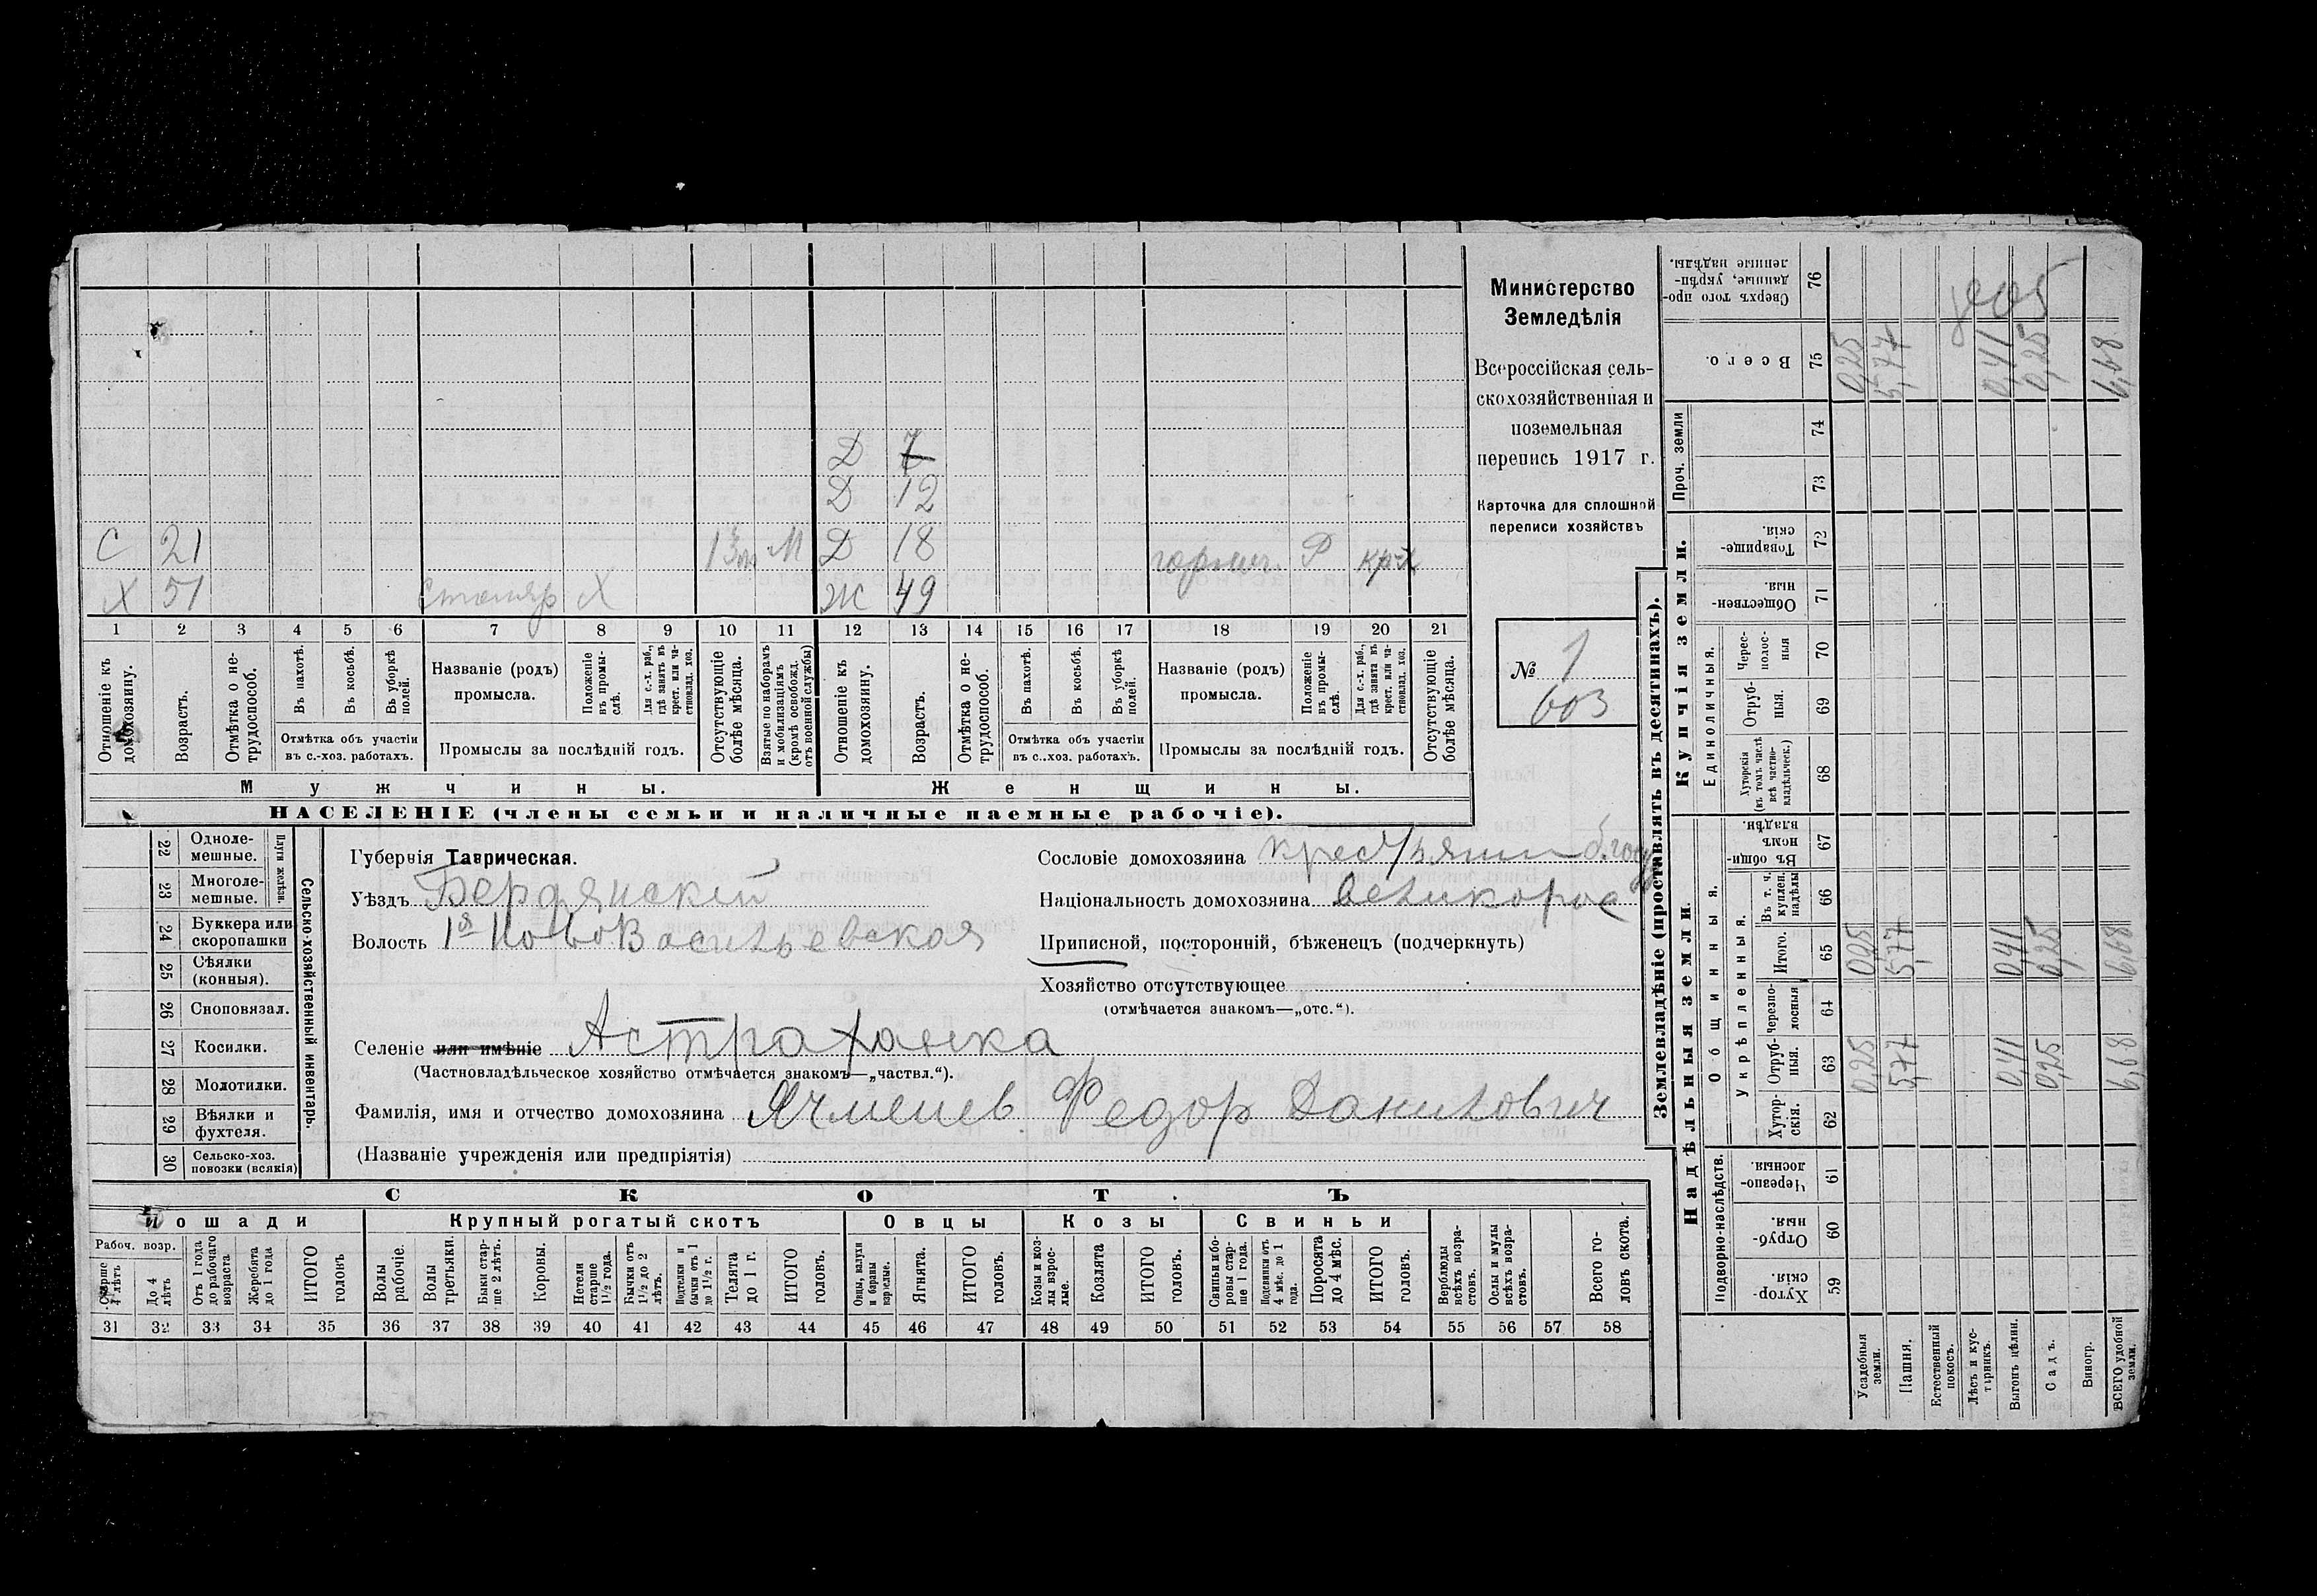 С 21 13 м М
Х 51 Столяр Х
Д 7
Д 12
Д 18 горнич. Р кр-х
Ж 49
1 2 3 4 5 6 7 8 9 10 11 12 13 14 15 16 17 18 19 20 21
Отношеніе къ домохозяину.
Возрастъ.
Отмѣтка о не-
трудоспособ.
Въ пахотѣ.
Въ косьбѣ.
Въ уборкѣ
полей.
Отмѣтка объ участіи
въ с.-хоз. работахъ.
Названіе (родъ)
промысла.
Положеніе
въ промы-
слѣ.
Для с.-х. раб.,
гдѣ занятъ въ
крест. или ча-
стновлад. хоз.
Промыслы за послѣдній годъ.
Отсутствующіе
болѣе мѣсяца.
Взятые по наборамъ
и мобилизаціямъ
(кромѣ освобожд.
отъ военной службы)
Отношеніе къ
домохозяину.
Возрастъ.
Отмѣтка о не-
трудоспособ.
Въ пахотѣ.
Въ косьбѣ.
Въ уборкѣ
полей.
Отмѣтка объ участіи
въ с..хоз. работахъ.
Названіе (родъ)
промысла.
Положеніе
въ промы-
слѣ.
Для с.-х. раб.,
гдѣ занята въ
крест. или ча-
стновлад. хоз.
Промыслы за послѣдній годъ.
Отсутствующіе
болѣе мѣсяца.
Мужчины. Женщины.
НАСЕЛЕНІЕ (члены семьи и наличные наемные рабочіе).
Министерство
Земледѣлія
Всероссійская сель-
скохозяйственная и
поземельная
перепись 1917 г.
Карточка для сплошной
переписи хозяйствъ
№ 1
603
22 Одноле-
мешные.
23 Многоле-
мешные.
Плуги желѣзн.
24 Буккера или
скоропашки
25 Сѣялки
(конныя).
26 Сноповязал.
27 Косилки.
28 Молотилки.
29 Вѣялки и
фухтеля.
30 Сельско-хоз.
повозки (всякія)
Сельско-хозяйственный инвентарь.
Губернія Таврическая.
Уѣздъ Бердянскій
Волость 1я НовоВасильевская
Сословіе домохозяина
Національность домохозяина великорос
Приписной, посторонній, бѣженецъ (подчеркнуть)
Хозяйство отсутствующее
(отмѣчается знакомъ—„отс.“).
Селеніе или имѣніе Астраханка
(Частновладѣльческое хозяйство отмѣчается знакомъ—„частвл.“).
Фамилія, имя и отчество домохозяина Ячменев Федор Данилович
(Названіе учрежденія или предпріятія)
СКОТЪ
Лошади
Рабоч. возр.
Свыше
4 лѣтъ
До 4
лѣтъ
Отъ 1 года
до рабочаго
возраста
Жеребята
до 1 года
ИТОГО
головъ
Крупный рогатый скотъ
Волы
рабочіе.
Волы
третьяки.
Быки стар-
ше 2 лѣтъ.
Коровы.
Нетели
старше
1½ года.
Бычки отъ
1½ до 2
лѣтъ.
Подтелки и
бычки отъ 1
до 1½ г.
Телята
до 1 г.
ИТОГО
головъ.
Овцы
Овцы, валухи
и бараны
взрослые.
Ягнята.
ИТОГО
головъ.
Козы
Козы и коз-
лы взрос-
лые.
Козлята
ИТОГО
головъ.
Свиньи
Свиньи и бо-
ровы стар-
ше 1 года.
Подсвинки отъ
4 мѣс. до 1
года.
Поросята
до 4 мѣс.
ИТОГО
головъ.
Верблюды
всѣхъ возра-
стовъ.
Ослы и мулы
всѣхъ возра-
стовъ.
Всего го-
ловъ скота.
31 32 33 34 35 36 37 38 39 40 41 42 43 44 45 46 47 48 49 50 51 52 53 54 55 56 57 58
Землевладѣніе (проставлять въ десятинахъ).
Надѣльныя земли.
Купчія земли.
Проч. земли
Подворно-наслѣдств.
Общинныя.
Укрѣпленныя.
Единоличныя.
Хутор-
скія. 59
Отруб-
ныя. 60
Черезпо-
лосныя. 61
Хутор-
скія. 62
Отруб-
ныя. 63
Черезпо-
лосныя 64
Итого. 65
Въ т. ч.
куплен.
надѣлы 66
Въ общин-
номъ
владѣн. 67
Хуторскія
(въ томъ числѣ
всѣ частно-
владѣльческ.) 68
Отруб-
ныя. 69
Черес-
полос-
ныя 70
Обществен-
ныя. 71
Товарище-
скія. 72
73
74
Всего. 75
Сверхъ того про-
данные, укрѣп-
ленные надѣлы. 76
Усадебныя
земли. 0,25 0,25 0,25
Пашня. 5,77 5,77 5,77
Естественный
покосъ.
Лѣсъ и кус-
тарникъ.
Выгонъ цѣлин. 0,41 0,41 0,41
Садъ. 0,25 0,25 0,25
Виногр.
ВСЕГО удобной
земли. 6,68 6,68 6,68